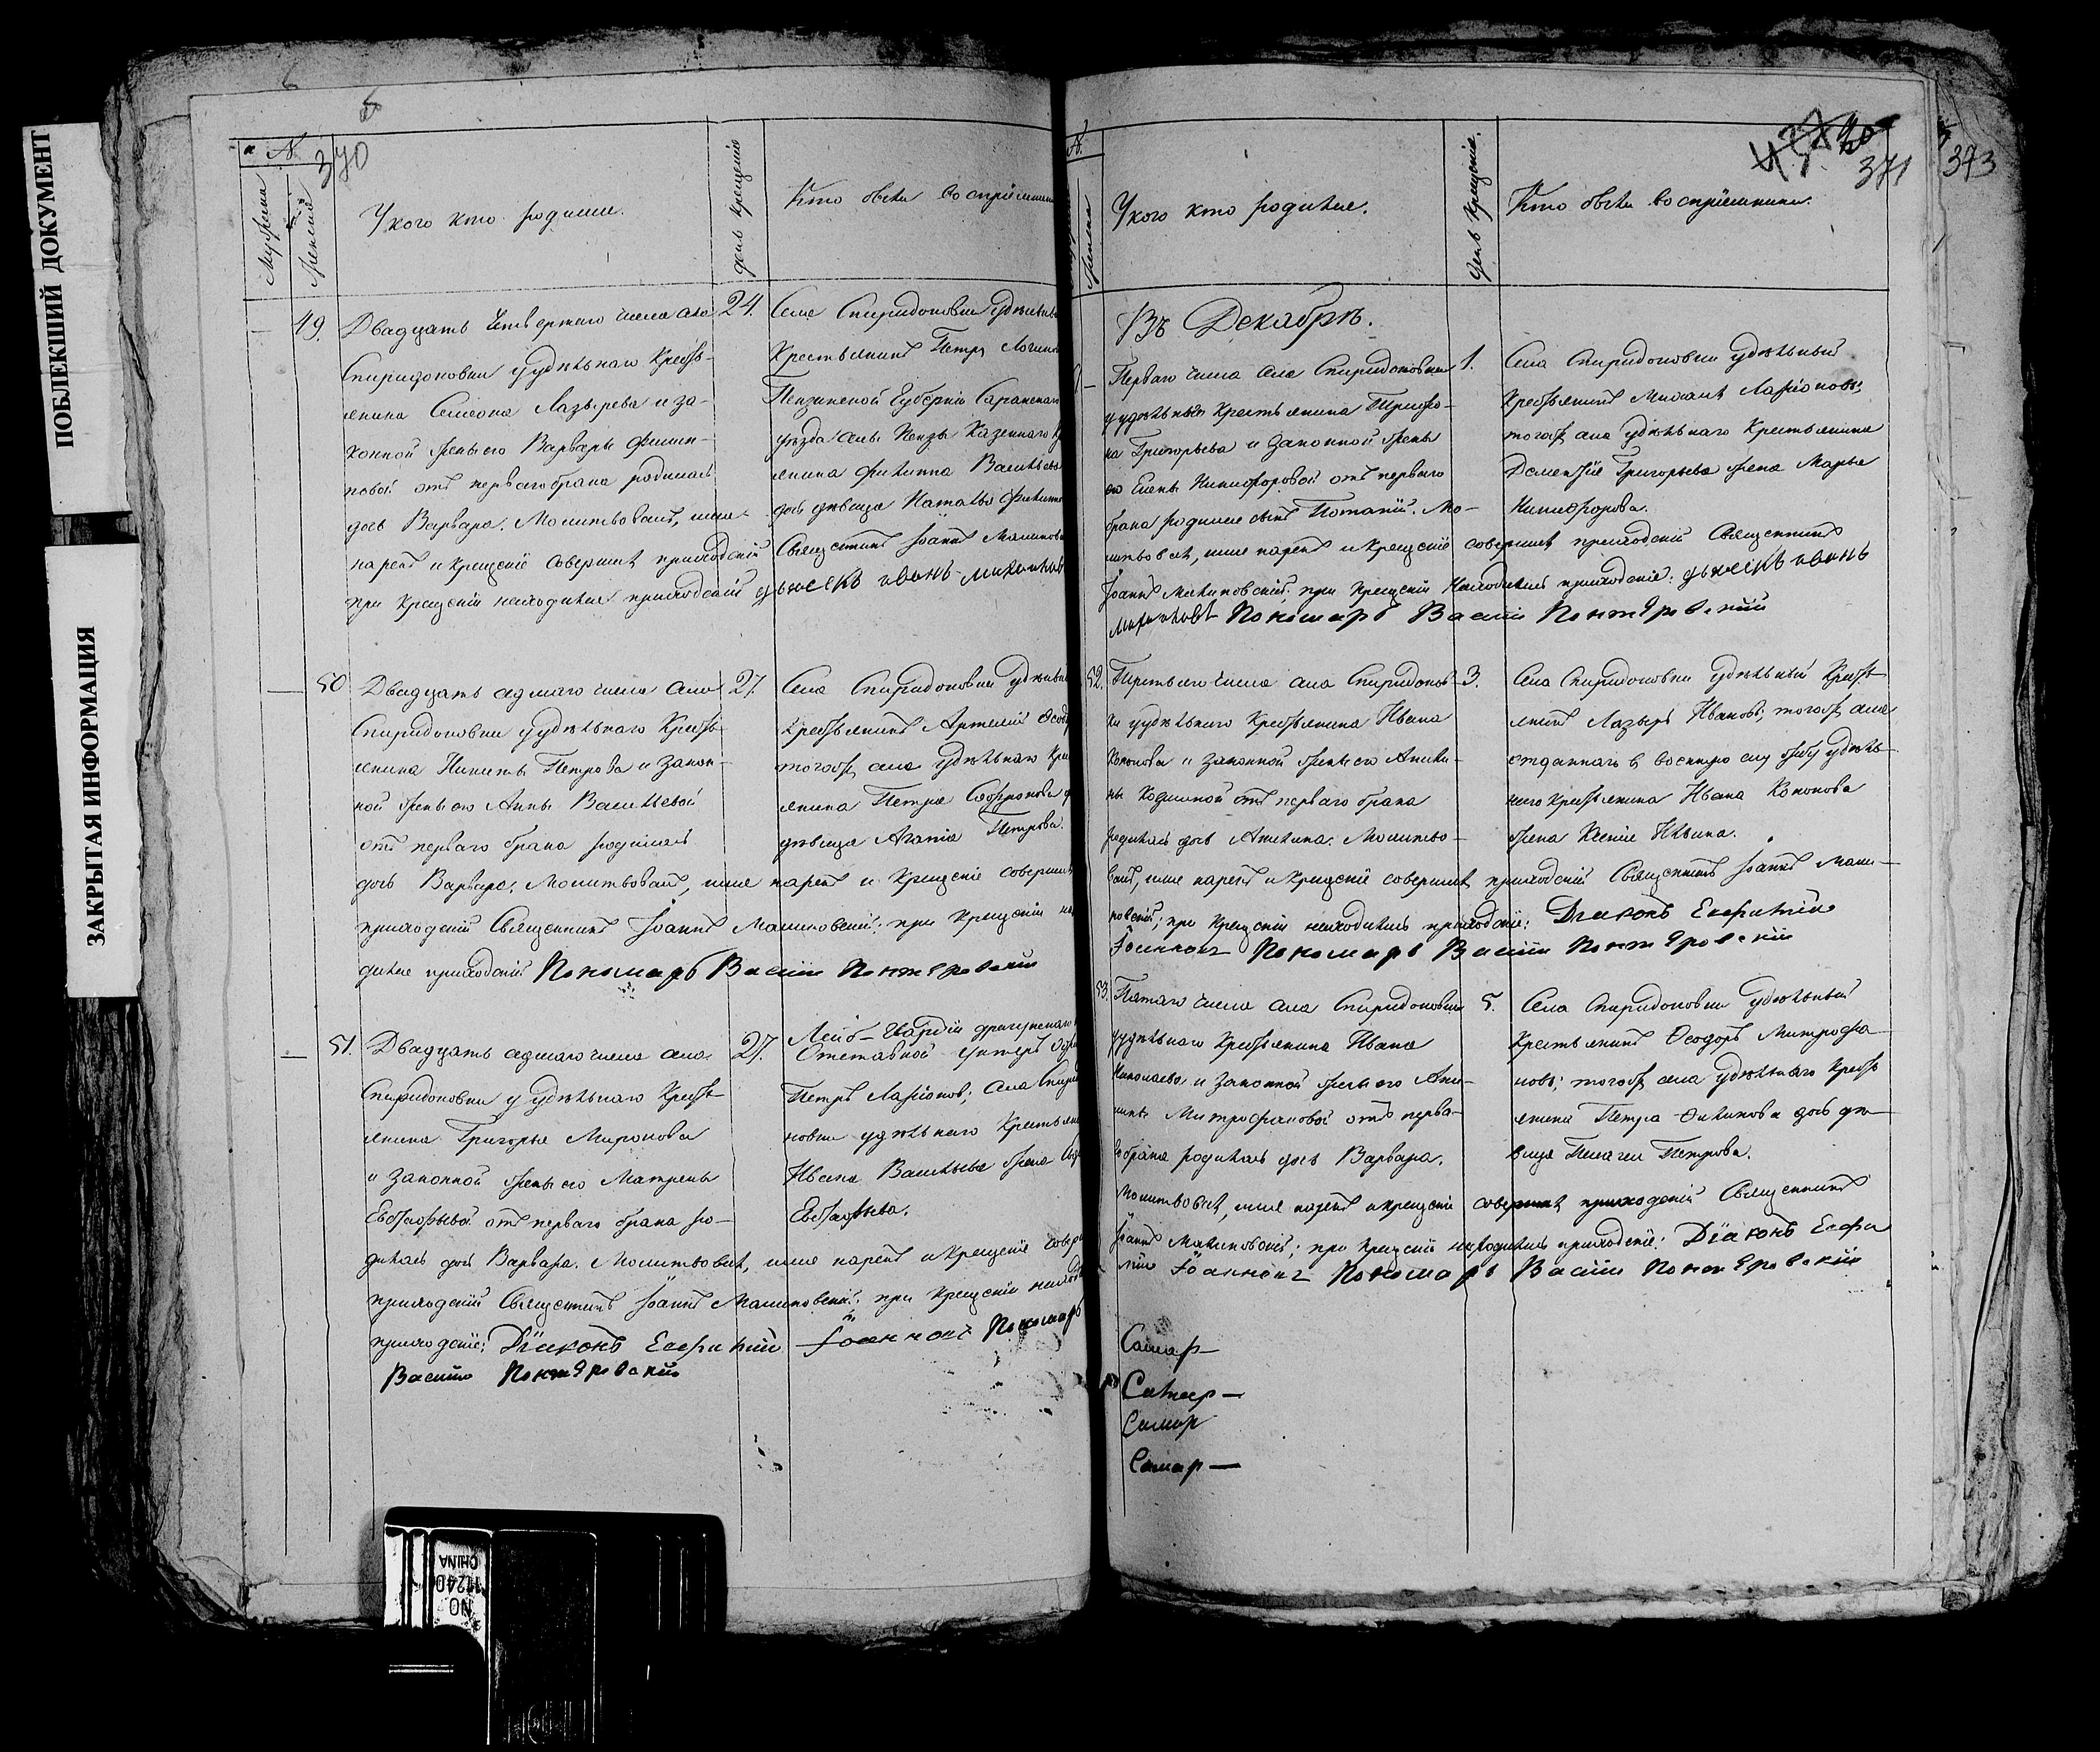 ПОБЛЕКШИЙ ДОКУМЕНТ
ЗАКРЫТАЯ ИНФОРМАЦИЯ
N.
370
Мужеска
Женска
У кого кто родился.
день крещенія
Кто были воспріемники
49.
Двадцать четвертаго числа села
Спиридоновки у удѣльнаго Кресть-
янина Симеона Лазырева и за-
конной жены его Варвары Филип-
повой отъ перваго брака родилась
дочь Варвара. Молитвовалъ, имя
нарекъ и крещеніе совершилъ приходскій Священникъ Іоаннъ Малиновск
при крещеніи находился приходскій дьячекъ иванъ михаиловъ
24.
Села Спиридоновки удѣльный
Крестьянинъ Петръ Логино
Пензенской Губерніи Саранскаго
уѣзда села Пензы Казеннаго
янина Филиппа Васильева
дочь дѣвица Наталья Филиппо
50
Двадцать седмаго числа села
Спиридоновки у удѣльнаго Кресть-
янина Никиты Петрова и закон-
ной жены его Анны Васильевой
отъ перваго брака родилась
дочь Варвара. Молитвовалъ, имя нарекъ и крещеніе совершилъ
приходскій Священникъ Іоаннъ Малиновскій; при крещеніи на
дился приходскій Пономарь Василій Понтѣровскій
27.
Села Спиридоновки удѣльный
Крестьянинъ Артемій Ѳеод
тогожъ села удѣльнаго Кре
янина Петра Софронова
дѣвица Агапія Петрова.
51.
Двадцать седмаго числа села
Спиридоновки у удѣльнаго Кресть-
янина Григорья Миронова
и законной жены его Матрены
Евстафьевой отъ перваго брака ро-
дилась дочь Варвара. Молитвовалъ, имя нарекъ и крещеніе совер
приходскій Священникъ Іоаннъ Малиновскій; при крещеніи находи
приходскіе: Діаконъ Евфимій Іоанновъ Пономарь
Василій Понтѣровскій
27.
Лейб-Гвардіи драгунскаго
Отставной унтеръ
Петръ Ларіонов; села Спири
новки удѣльнаго Крестьяни
Ивана Васильева жена
Евстафьева.
N.
Женска
У кого кто родился.
день крещенія.
Кто были воспріемники.
371
373
Въ Декабрѣ.
Перваго числа села Спиридоновки
у удѣльнаго Крестьянина Трифо-
на Григорьева и законной жены
его Елены Никифоровой отъ перваго
брака родился сынъ Потапій. Мо-
литвовалъ, имя нарекъ и крещеніе совершилъ приходскій Священникъ
Іоаннъ Малиновскій; при крещеніи находились приходскіе: дьячекъ иванъ
михаиловъ Пономарь Василій Понтѣровскій
1.
Села Спиридоновки удѣльный
Крестьянинъ Михаилъ Ларіоновъ;
тогожъ села удѣльнаго Крестьянина
Дементія Григорьева жена Марья
Никифорова.
52.
Третьяго числа села Спиридонов-
ки у удѣльнаго Крестьянина Ивана
Кононова и законной жены его Акили-
ны Кодиной отъ перваго брака
родилась дочь Акилина. Молитво-
валъ, имя нарекъ и крещеніе совершилъ приходскій Священникъ Іоаннъ Мали-
новскій; при крещеніи находились приходскіе: Діаконъ Евфимій
Іоанновъ Пономарь Василій Понтѣровскій
3.
Села Спиридоновки удѣльный Кресть-
янинъ Лазырь Ивановъ; тогожъ села
отданнаго в военную службу удѣль-
наго Крестьянина Ивана Кононова
жена Ксенія Ильина.
53.
Пятаго числа села Спиридоновки
у удѣльнаго Крестьянина Ивана
Николаева и законной жены его
Митрофановой отъ перва-
го брака родилась дочь Варвара.
Молитвовалъ, имя нарекъ и крещеніе совершилъ приходскій Священникъ
Іоаннъ Малиновскій; при крещеніи находились приходскіе: Діаконъ Евфи
мій Іоанновъ Пономарь Василій Понтѣровскій
5.
Села Спиридоновки удѣльный
Крестьянинъ Ѳеодоръ Митрофа-
новъ; тогожъ села удѣльнаго Кресть
янина Петра Филипова дочь дѣ-
вица Пелагея Петрова.
Самар-
Самар-
Самар
Самар-
NO
1124D
CHINA